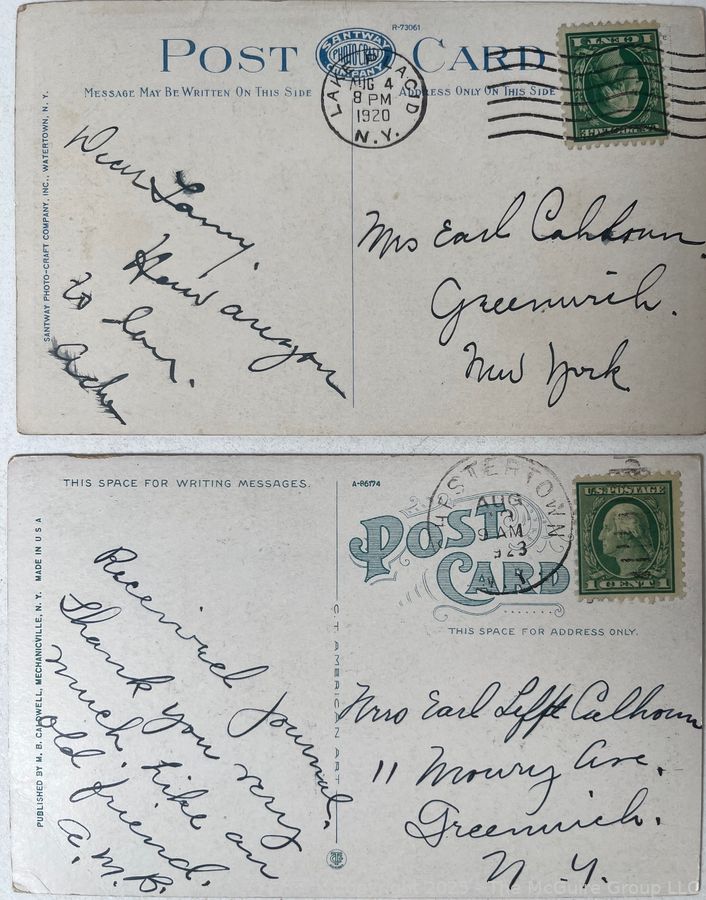 R-73061
POST CARD
SANTWAY
PHOTO-CRAFT
COMPANY INC.
MESSAGE MAY BE WRITTEN ON THIS SIDE
ADDRESS ONLY ON THIS SIDE
LAKE PLACID
AUG 4
8 PM
1920
N.Y.
SANTWAY PHOTO-CRAFT COMPANY, INC., WATERTOWN, N. Y.
Dear
to
Mrs Earl Calhoun
Greenwich.
New York
THIS SPACE FOR WRITING MESSAGES.
A-86174
POST
CARD
CHESTERTOWN
AUG
9 AM
923
U.S. POSTAGE
1 CENT 1
THIS SPACE FOR ADDRESS ONLY.
PUBLISHED BY M. B. CALDWELL, MECHANICVILLE, N. Y. MADE IN U S A
C T AMERICAN ART
Received Journal.
Thank you very
much. Like an
old friend.
A. M. B.
Mrs Earl Lifft Calhoun
11 Mowry Ave.
Greenwich.
N. Y.
Copyright 2025 - The McGuire Group LLC